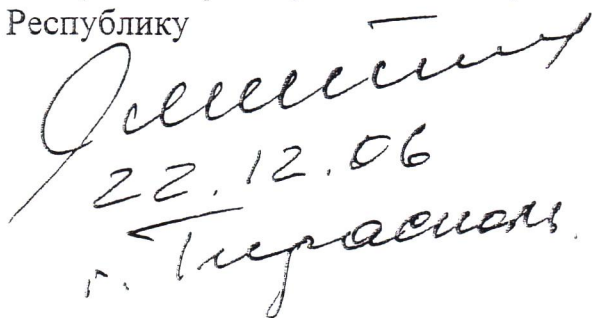 Республику
22.12.06
г. Тирасполь